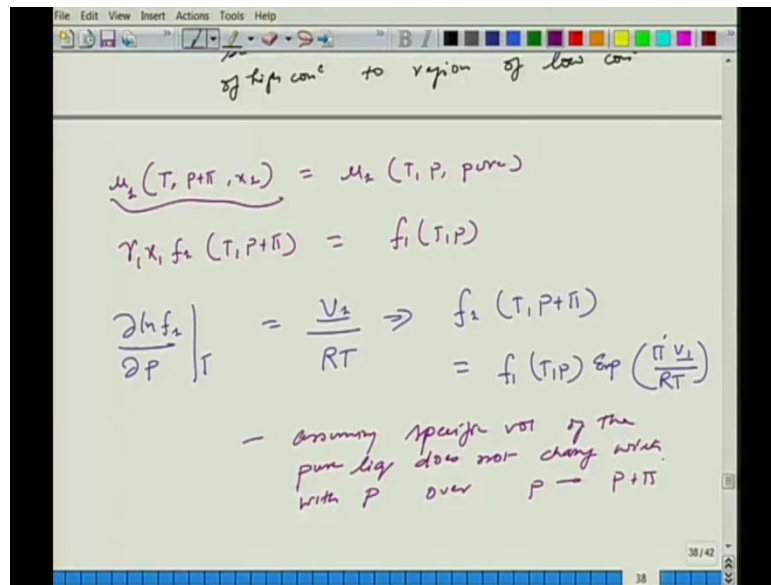 File Edit View Insert Actions Tools Help
of high conc to region of low conc
μ₁ (T, P+π, x₁) = μ₁ (T, P, pure)
γ₁ x₁ f₁ (T, P+π) = f₁ (T, P)
∂ln f₁ / ∂P |T = V₁ / RT ⇒ f₁ (T, P+π)
= f₁ (T, P) Exp (π V₁ / RT)
— assuming specific vol of the
pure liq does not chang
with P over P → P+π
38/42
38